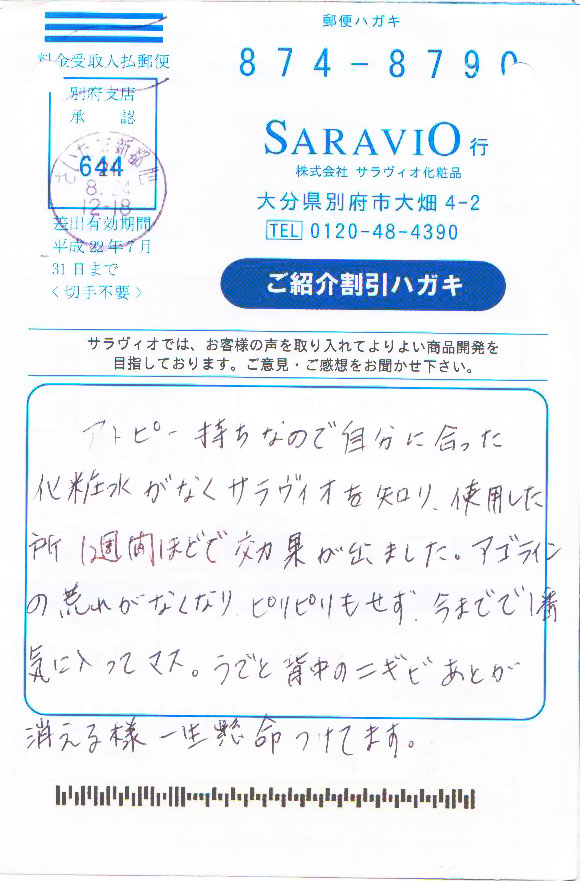 郵便ハガキ
料金受取人払郵便
874-8790
別府支店
承 認
644
さいたま新都心
8.24
12-18
差出有効期間
平成22年7月
31日まで
<切手不要>
SARAVIO行
株式会社 サラヴィオ化粧品
大分県別府市大畑 4-2
TEL 0120-48-4390
ご紹介割引ハガキ
サラヴィオでは、お客様の声を取り入れてよりよい商品開発を
目指しております。ご意見・ご感想をお聞かせ下さい。
アトピー持ちなので自分に合った
化粧水がなくサラヴィオを知り、使用した
所 1週間ほどで効果が出ました。アゴライン
の荒れがなくなり、ピリピリもせず、今までで1番
気に入ってマス。うでと背中のニキビあとが
消える様 一生懸命つけてます。